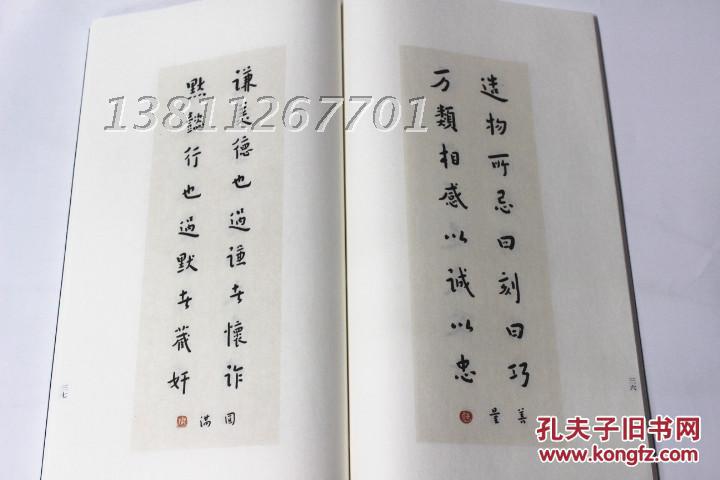 造物所忌曰刻曰巧
万類相感以诚以忠
善量
三六
谦美德也過谦者懷诈
默懿行也過默者藏奸
圆满
三七
13811267701
孔夫子旧书网
www.kongfz.com